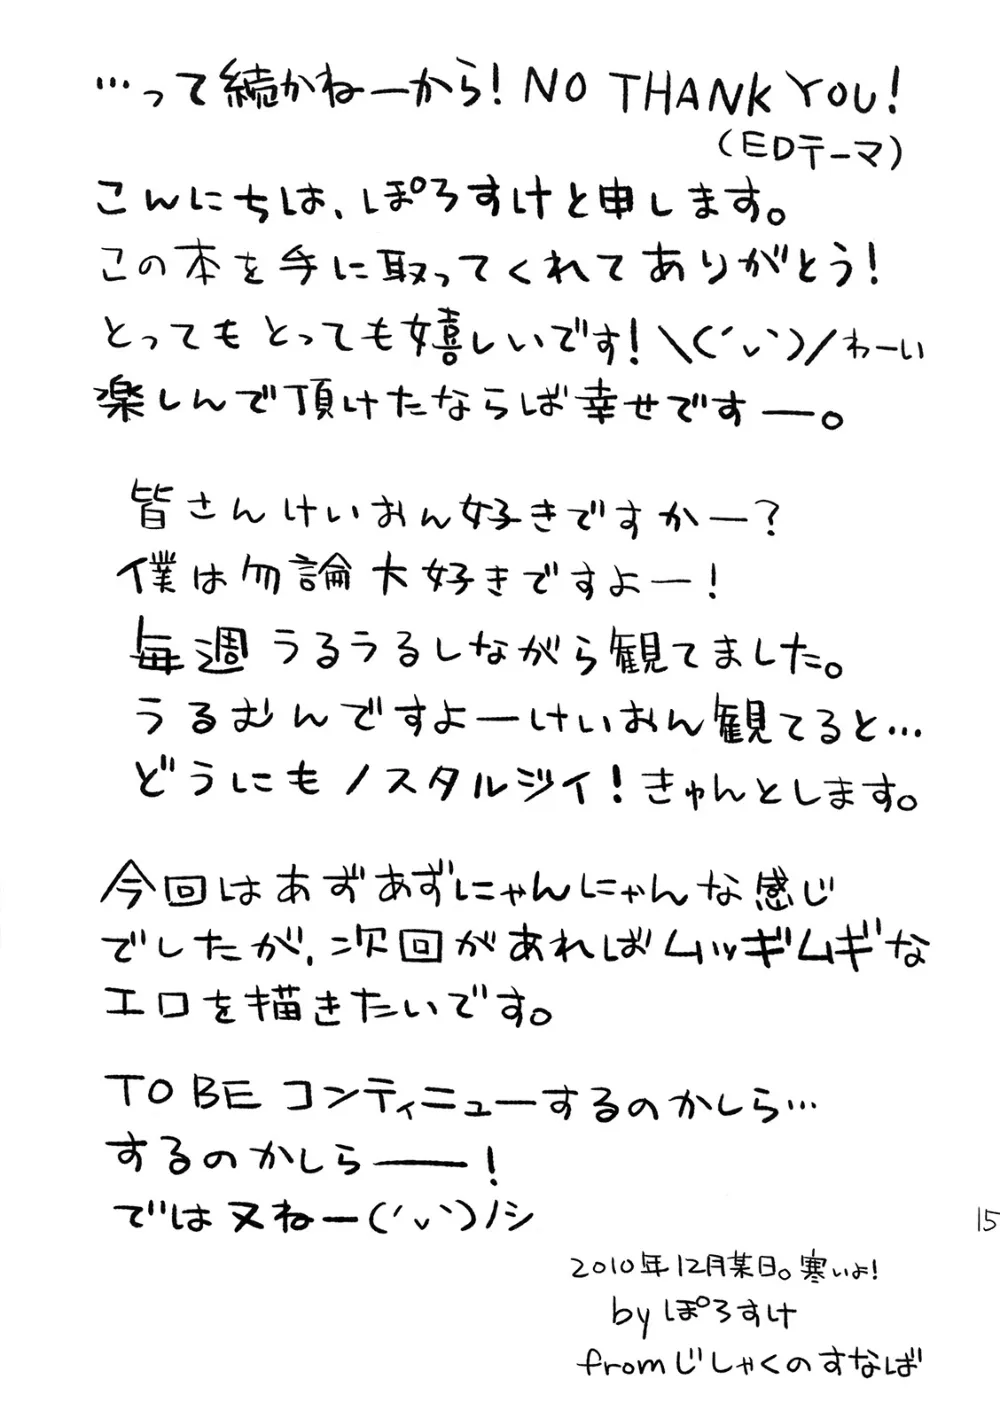 …って続かねーから! NO THANK YOU!
(EDテーマ)
こんにちは、ぽろすけと申します。
この本を手に取ってくれてありがとう!
とってもとっても嬉しいです!\(´ヽ`)/わーい
楽しんで頂けたならば幸せですー。
皆さんけいおん好きですかー?
僕は勿論大好きですよー!
毎週うるうるしながら観てました。
うるむんですよーけいおん観てると…
どうにもノスタルジイ!きゅんとします。
今回はあずあずにゃんにゃんな感じ
でしたが、次回があればムッギムギな
エロを描きたいです。
TO BE コンティニューするのかしら…
するのかしらーー!
では又ねー(´ヽ`)ノシ
15
2010年12月某日。寒いよ!
by ぽろすけ
fromじしゃくのすなば